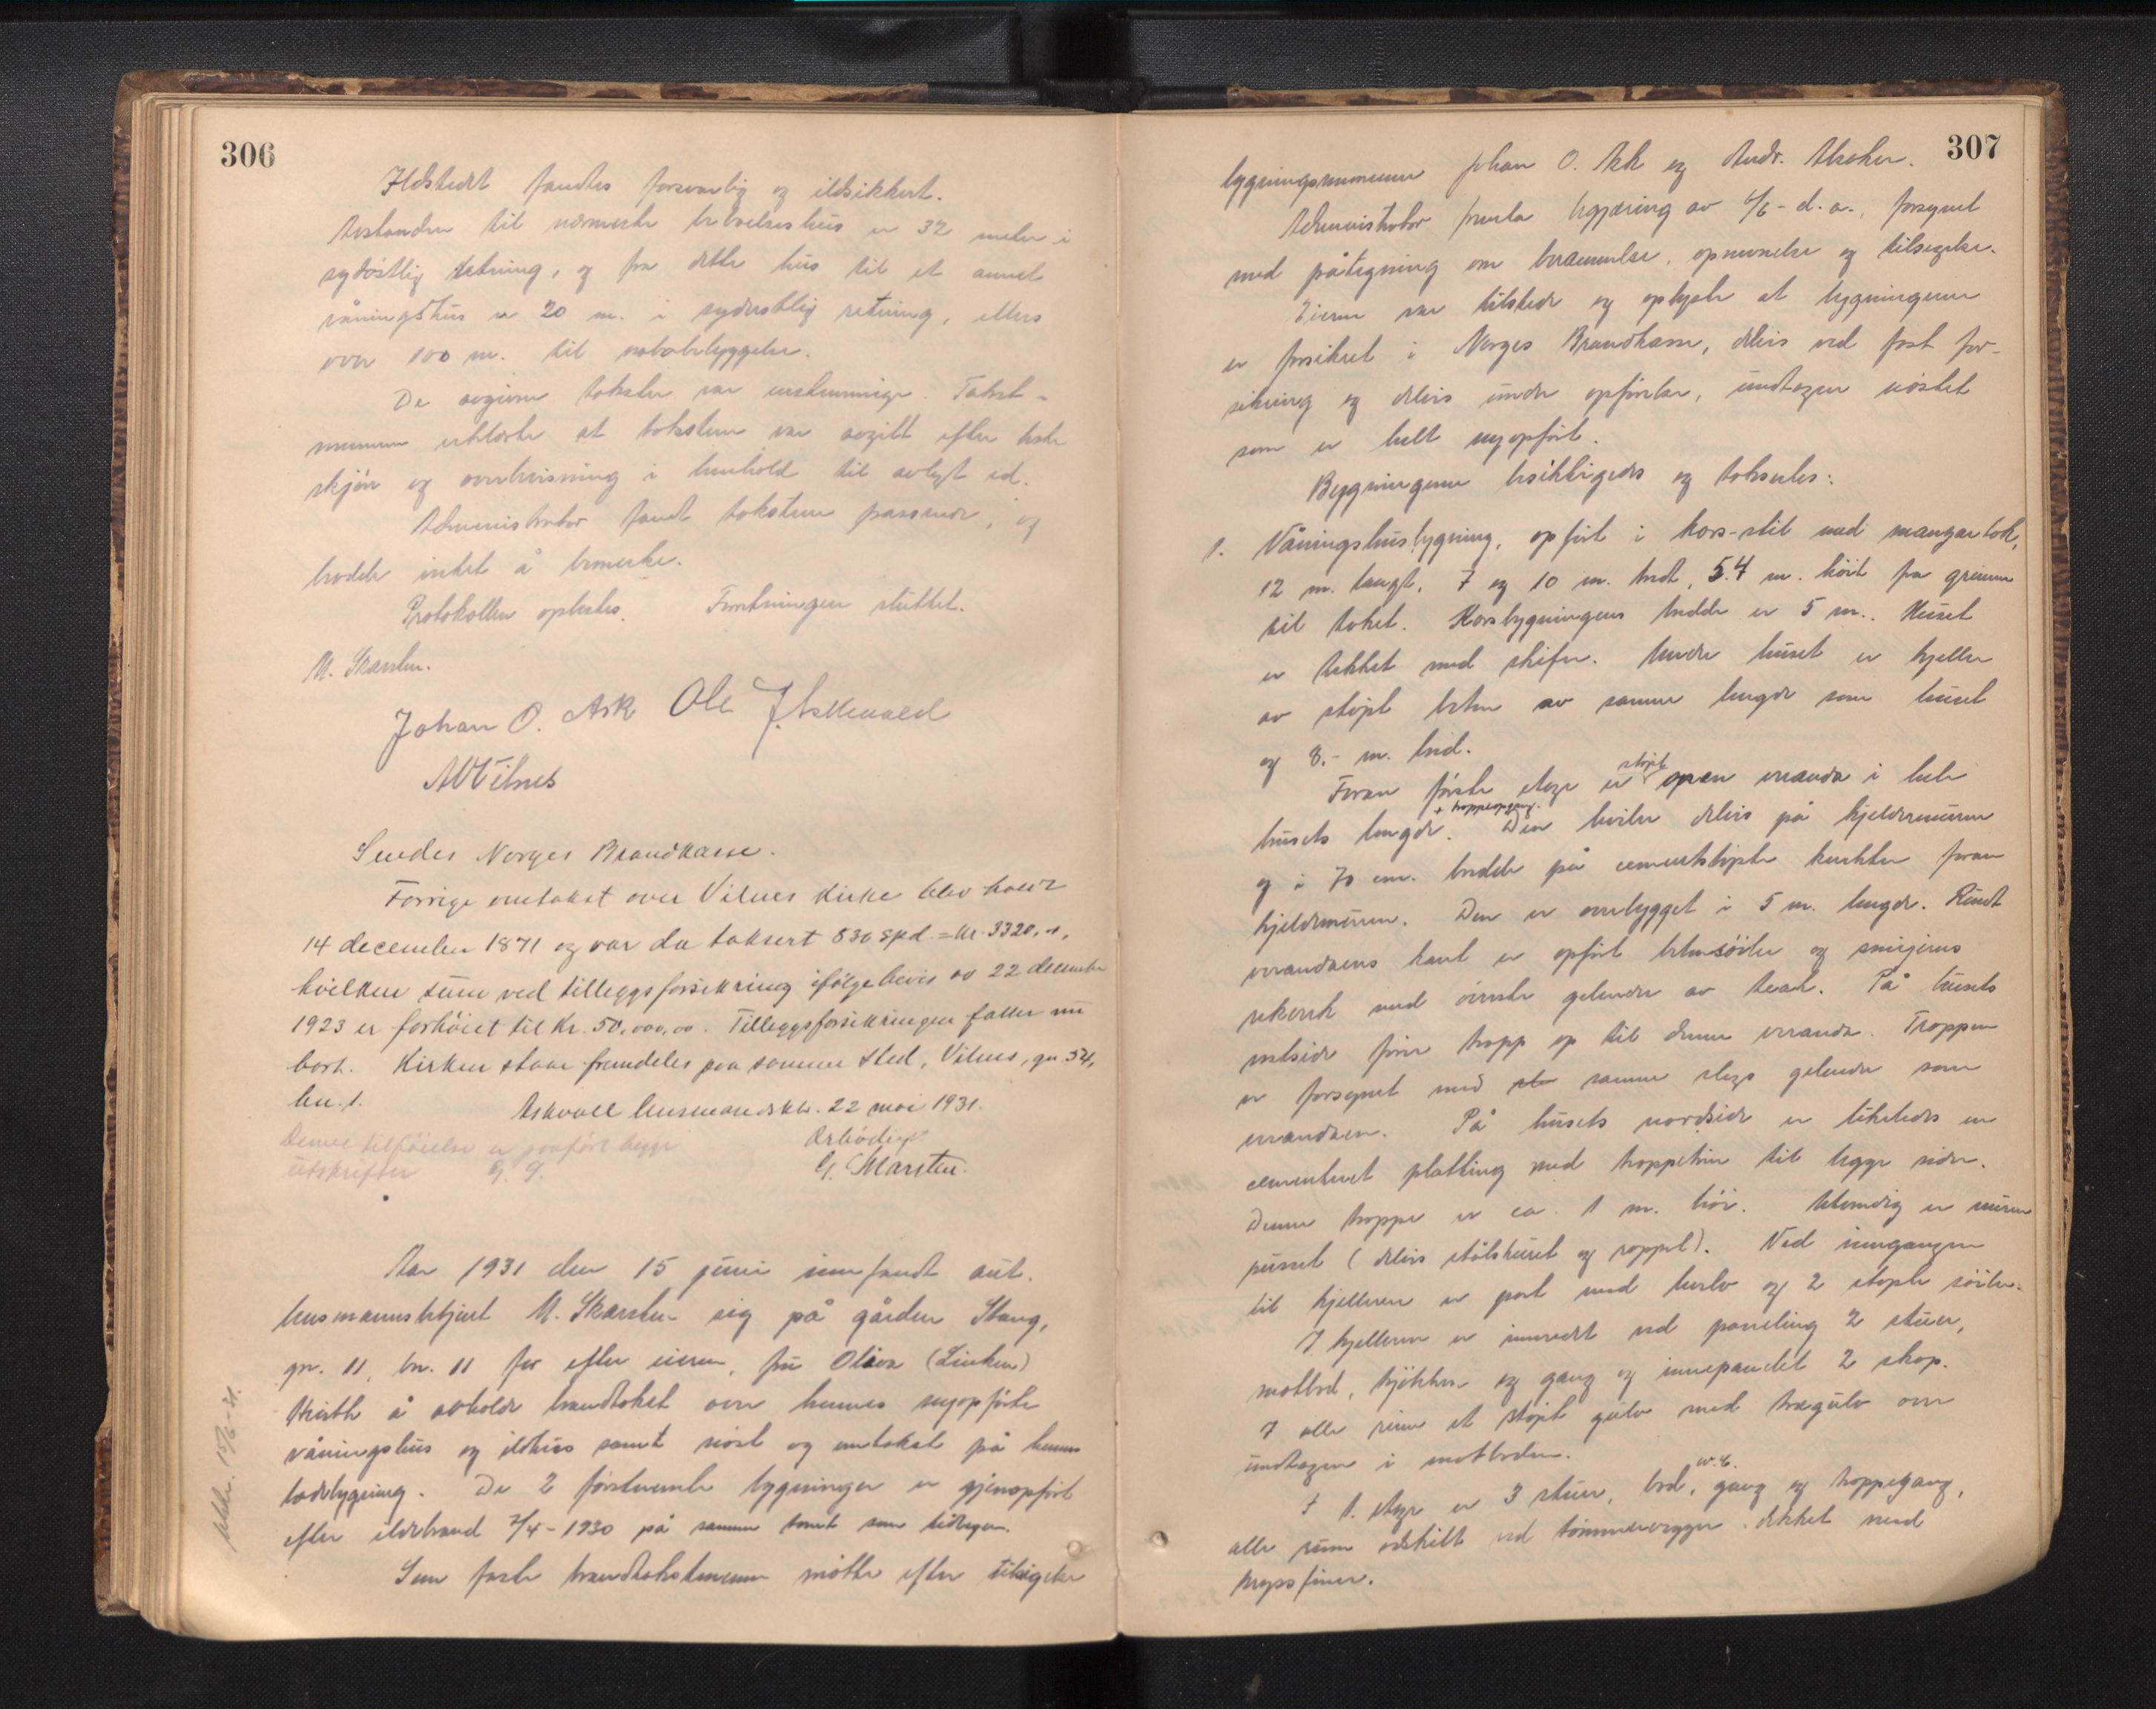 306
Ildstedet fandtes forsvarlig og ildsikkert.
Avstanden til nærmeste beboelseshus er 32 meter i
sydöstlig retning, og fra dette hus til et annet
våningshus er 20 m. i sydvestlig retning, ellers
over 100 m. til nabobebyggelse.
De avgivne takster var enstemmige. Takst-
mennene erklærte at taksterne var avgitt efter beste
skjön og overbevisning i henhold til avlagt ed.
Administrator fandt taksterne passende, og
hadde intet å bemerke.
Protokollen oplæstes. Forretningen sluttet.
M. Skarsten.
Johan O. Ask Ole J. Askevold
Sendes Norges Brandkasse.
Forrige omtakst over Vilnes kirke blev holdt
14 december 1871 og var da taksert 830 Spd. = kr. 3320,
hvilken sum ved tilleggsforsikring ifölge bevis av 22 december
1923 er forhöiet til kr. 50.000,00. Tilleggsforsikringen faller nu
bort. Kirken staar fremdeles paa samme sted, Vilnes, gn. 54,
bn. 1.
Askvoll lensmandskt. 22 mai 1931.
Denne tilföielse er paafört begge
utskrifter G. S.
Ærbödigst
Aar 1931 den 15 juni innfandt aut.
lensmannsbetjent M. Skarsten sig på gården Stang,
gn. 11, bn. 11 for efter eieren, fru Oliva
å avholde brandtakst over hennes nyopförte
våningshus og ildhus samt nöst og omtakst på hennes
ladebygning. De 2 förstnevnte bygninger er gjenopfört
efter ildebrand 7/4-1930 på samme tomt som tidligere.
Som faste brandtakstmenn mötte efter tilsigelse
15/6-31.
307
bygningsmennene Johan O. Ask og Andr.
Administrator fremla begjæring av 6/6- d.a., forsynet
med påtegning om berammelse, opnevnelse og tilsigelse.
Eieren var tilstede og oplyste at bygningene
er forsikret i Norges Brandkasse, delvis ved fast for-
sikring og delvis under opförelse, undtagen nöstet
som er helt nyopfört.
Bygningene besiktigedes og takseredes:
1. Våningshusbygning, opfört i kors-stil med mansardtak,
12 m. langt, 7 og 10 m. bredt, 5.4 m. höit fra grunnen
til taket. Korsbygningens bredde er 5 m. Huset
er tekket med skifer. Under huset er kjeller
av stöpt beton av samme lengde som huset
og 8.- m. bred.
Foran förste etage er stöpt open veranda i hele
husets lengde + trappeopgang. Den hviler delvis på kjeldermuren
og i 70 cm. bredde på cementstöpte foran
kjeldermuren. Den er overbygget i 5 m. lengde. Rundt
verandaens kant er opfört betonsöiler og smijerns
rekverk med överste gelender av teak. På husets
vestside förer trapp op til denne veranda. Trappen
er forsynet med samme slags gelender som
verandaen. På husets nordside er likeledes en
cementeret platting med trappetrin til begge sider.
Denne trappe er ca. 1 m. höi. Utvendig er muren
pusset (delvis stålskuret og rappet). Ved inngangen
til kjelleren er port med og 2 stöpte söiler.
I kjelleren er innredet ved paneling 2 stuer,
matbod, kjökken og gang og innepanelet 2 skap.
I alle rum et stöpt gulv med tregulv over
undtagen i matboden.
I 1. etage er 3 stuer, bod, w.c. gang og trappegang,
alle rum adskilt ved tömmervegger, dekket med
kryssfiner.